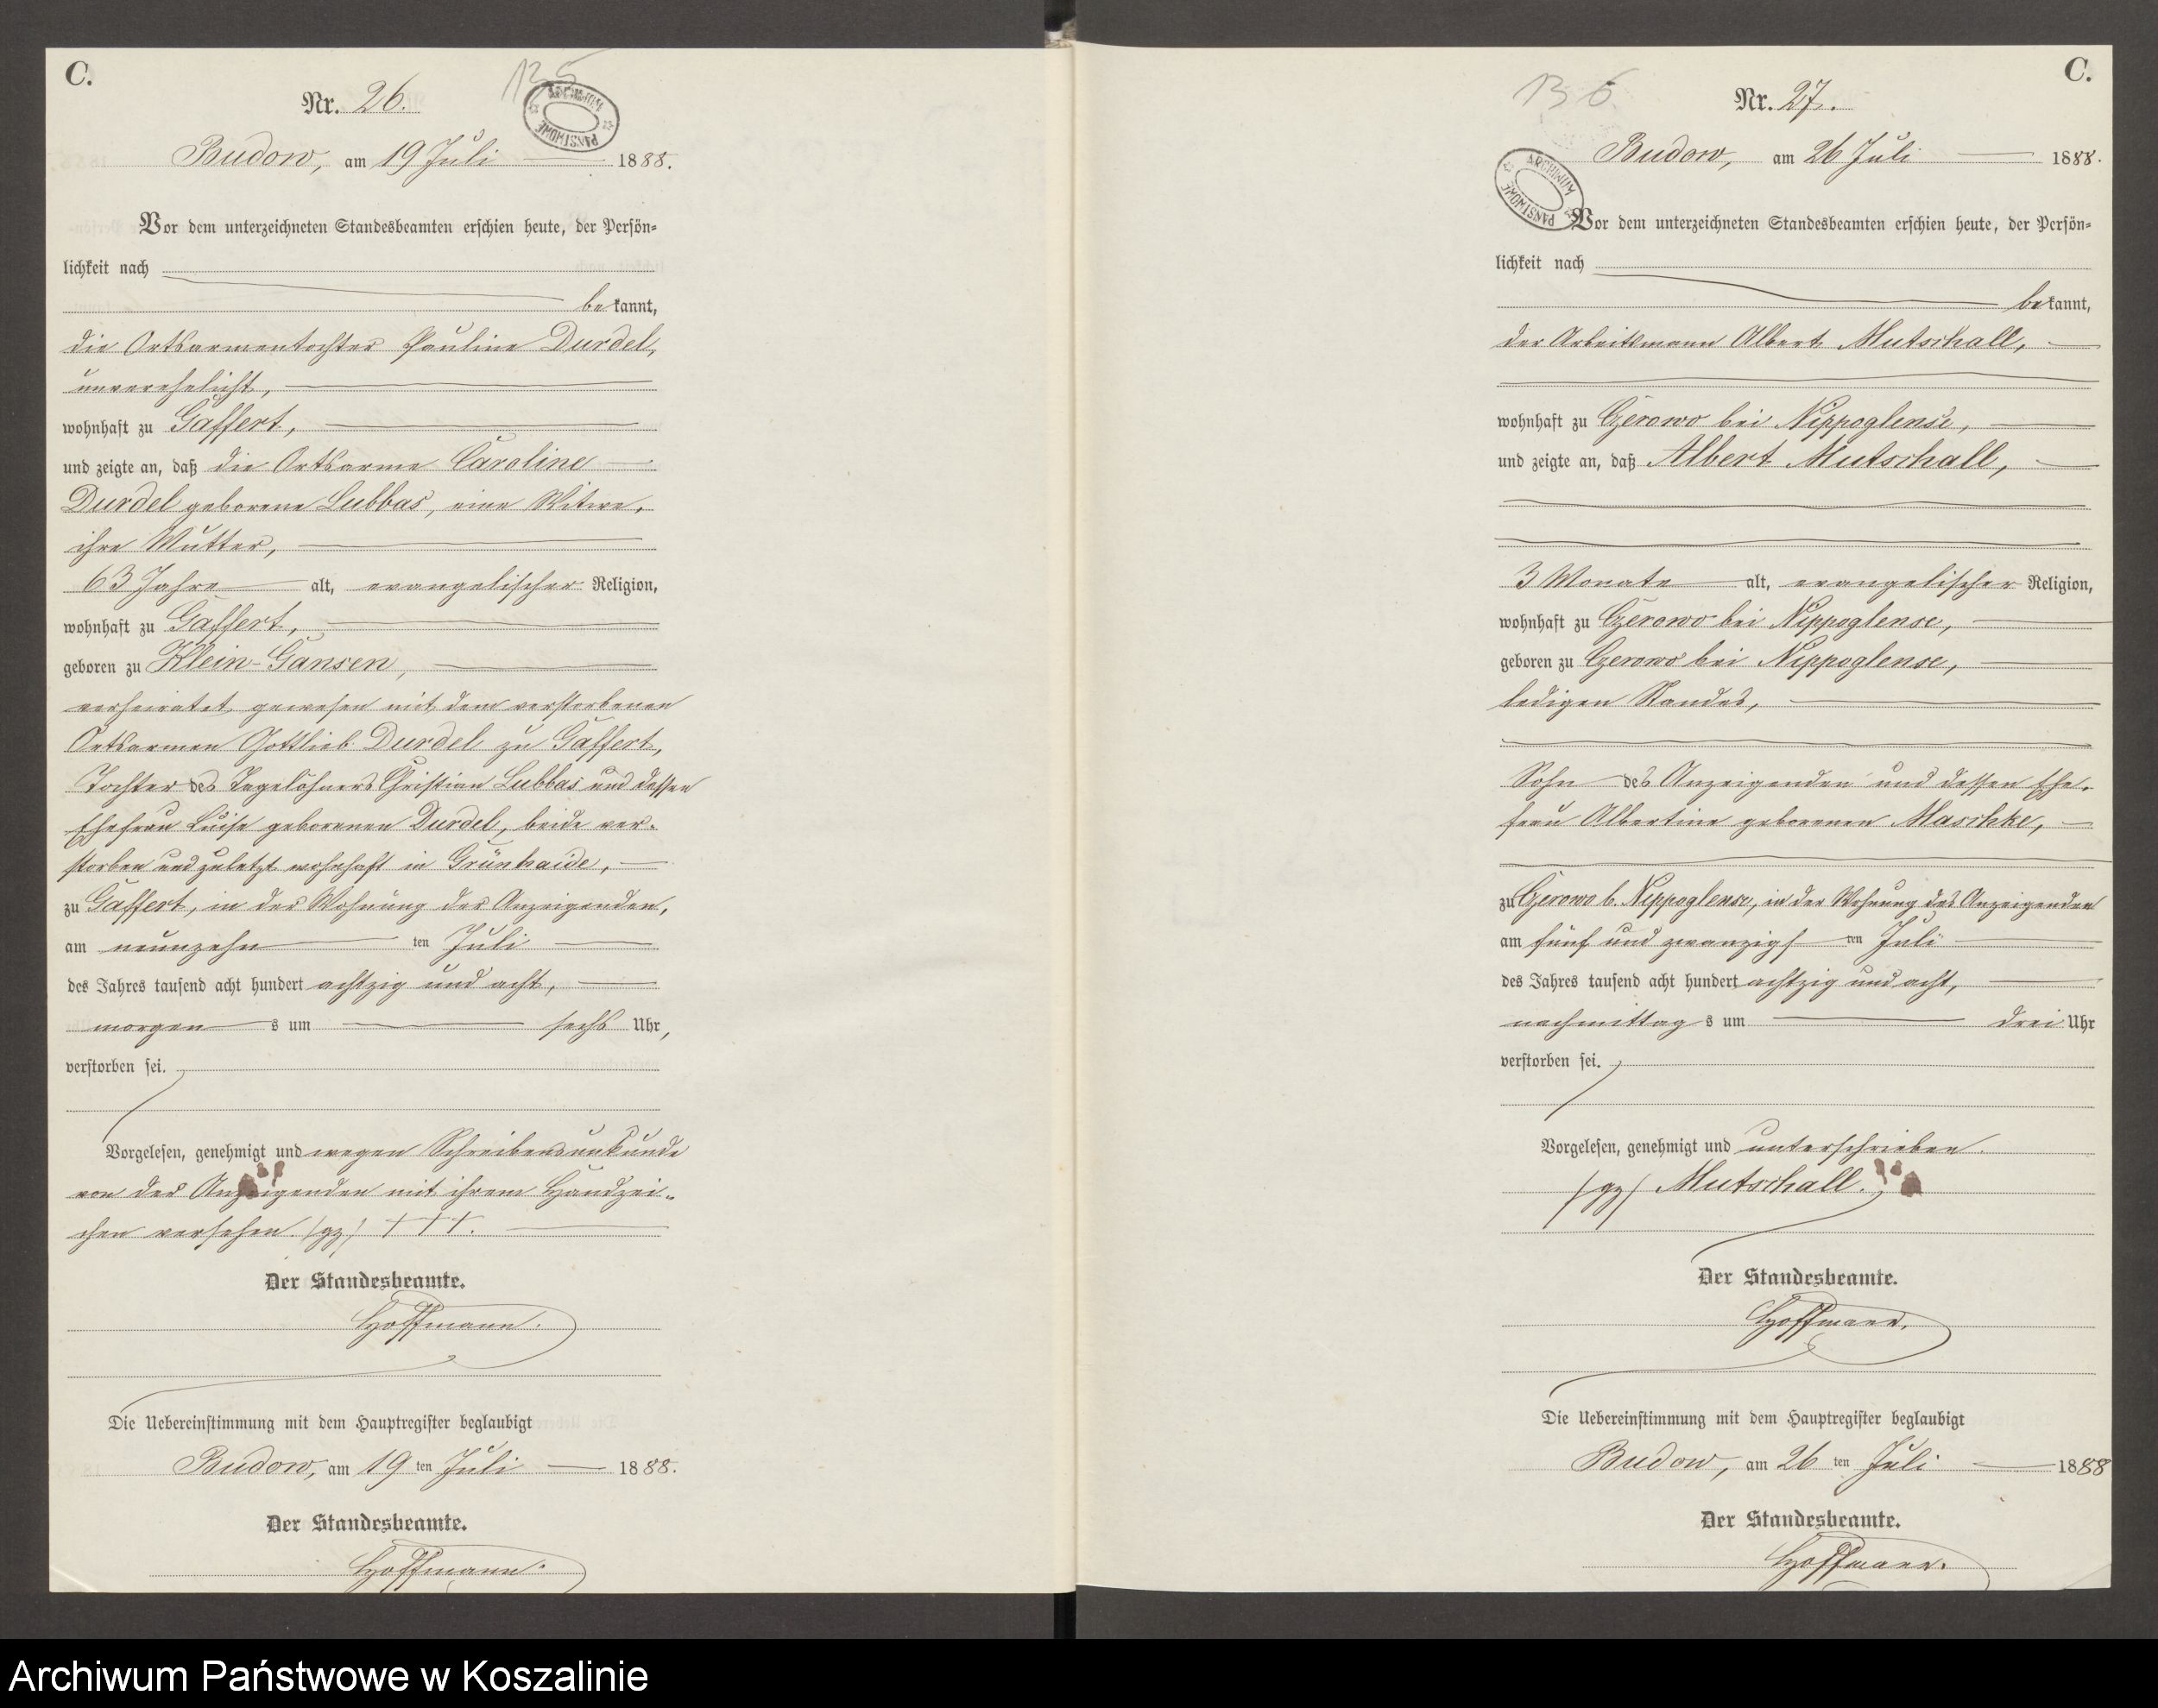 C.
135
Nr. 26.
ARCHIWUM PAŃSTWOWE
Budow, am 19 Juli 1888.
Vor dem unterzeichneten Standesbeamten erschien heute, der Persön-
lichkeit nach
bekannt,
die Ortsarmentochter Pauline Durdel,
unverehelicht,
wohnhaft zu Gaffert,
und zeigte an, daß die Ortsarme Caroline
Durdel geborene Lubbas, eine Witwe,
ihre Mutter,
63 Jahre alt, evangelischer Religion,
wohnhaft zu Gaffert,
geboren zu Klein-Gansen,
verheiratet gewesen mit dem verstorbenen
Ortsarmen Gottlieb Durdel zu Gaffert,
Tochter des Tagelöhners Christian Lubbas und dessen
Ehefrau Luise geborenen Durdel, beide ver-
storben und zuletzt wohnhaft in Grünhaide,
zu Gaffert, in der Wohnung der Anzeigenden,
am neunzehnten Juli
des Jahres tausend acht hundert achtzig und acht,
morgens um sechs Uhr,
verstorben sei.
Vorgelesen, genehmigt und wegen Schreibensunkunde
von der Anzeigenden mit ihrem Handzei-
chen versehen. /gz/ +++.
Der Standesbeamte.
Hoffmann.
Die Uebereinstimmung mit dem Hauptregister beglaubigt
Budow, am 19ten Juli 1888.
Der Standesbeamte.
Hoffmann.
C.
136
Nr. 27.
ARCHIWUM PAŃSTWOWE
Budow, am 26 Juli 1888.
Vor dem unterzeichneten Standesbeamten erschien heute, der Persön-
lichkeit nach
bekannt,
der Arbeitsmann Albert Mutschall,
wohnhaft zu Czerowo bei Nippoglense,
und zeigte an, daß Albert Mutschall,
3 Monate alt, evangelischer Religion,
wohnhaft zu Czerowo bei Nippoglense,
geboren zu Czerowo bei Nippoglense,
ledigen Standes,
Sohn des Anzeigenden und dessen Ehe-
frau Albertine geborenen Maschke,
zu Czerowo b. Nippoglense, in der Wohnung des Anzeigenden
am fünf und zwanzigsten Juli
des Jahres tausend acht hundert achtzig und acht,
nachmittags um drei Uhr
verstorben sei.
Vorgelesen, genehmigt und unterschrieben.
/gz/ Mutschall.
Der Standesbeamte.
Hoffmann.
Die Uebereinstimmung mit dem Hauptregister beglaubigt
Budow, am 26ten Juli 1888
Der Standesbeamte.
Hoffmann.
Archiwum Państwowe w Koszalinie